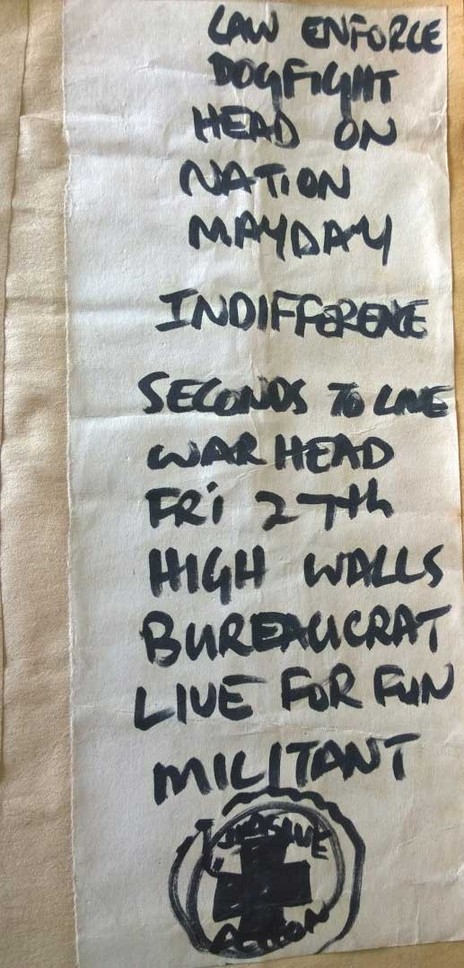 LAW ENFORCE
DOGFIGHT
HEAD ON
NATION
MAYDAY
INDIFFERENCE
SECONDS TO LIVE
WAR HEAD
FRi 27th
HIGH WALLS
BUREAUCRAT
LIVE FOR FUN
MILITANT
ACTION